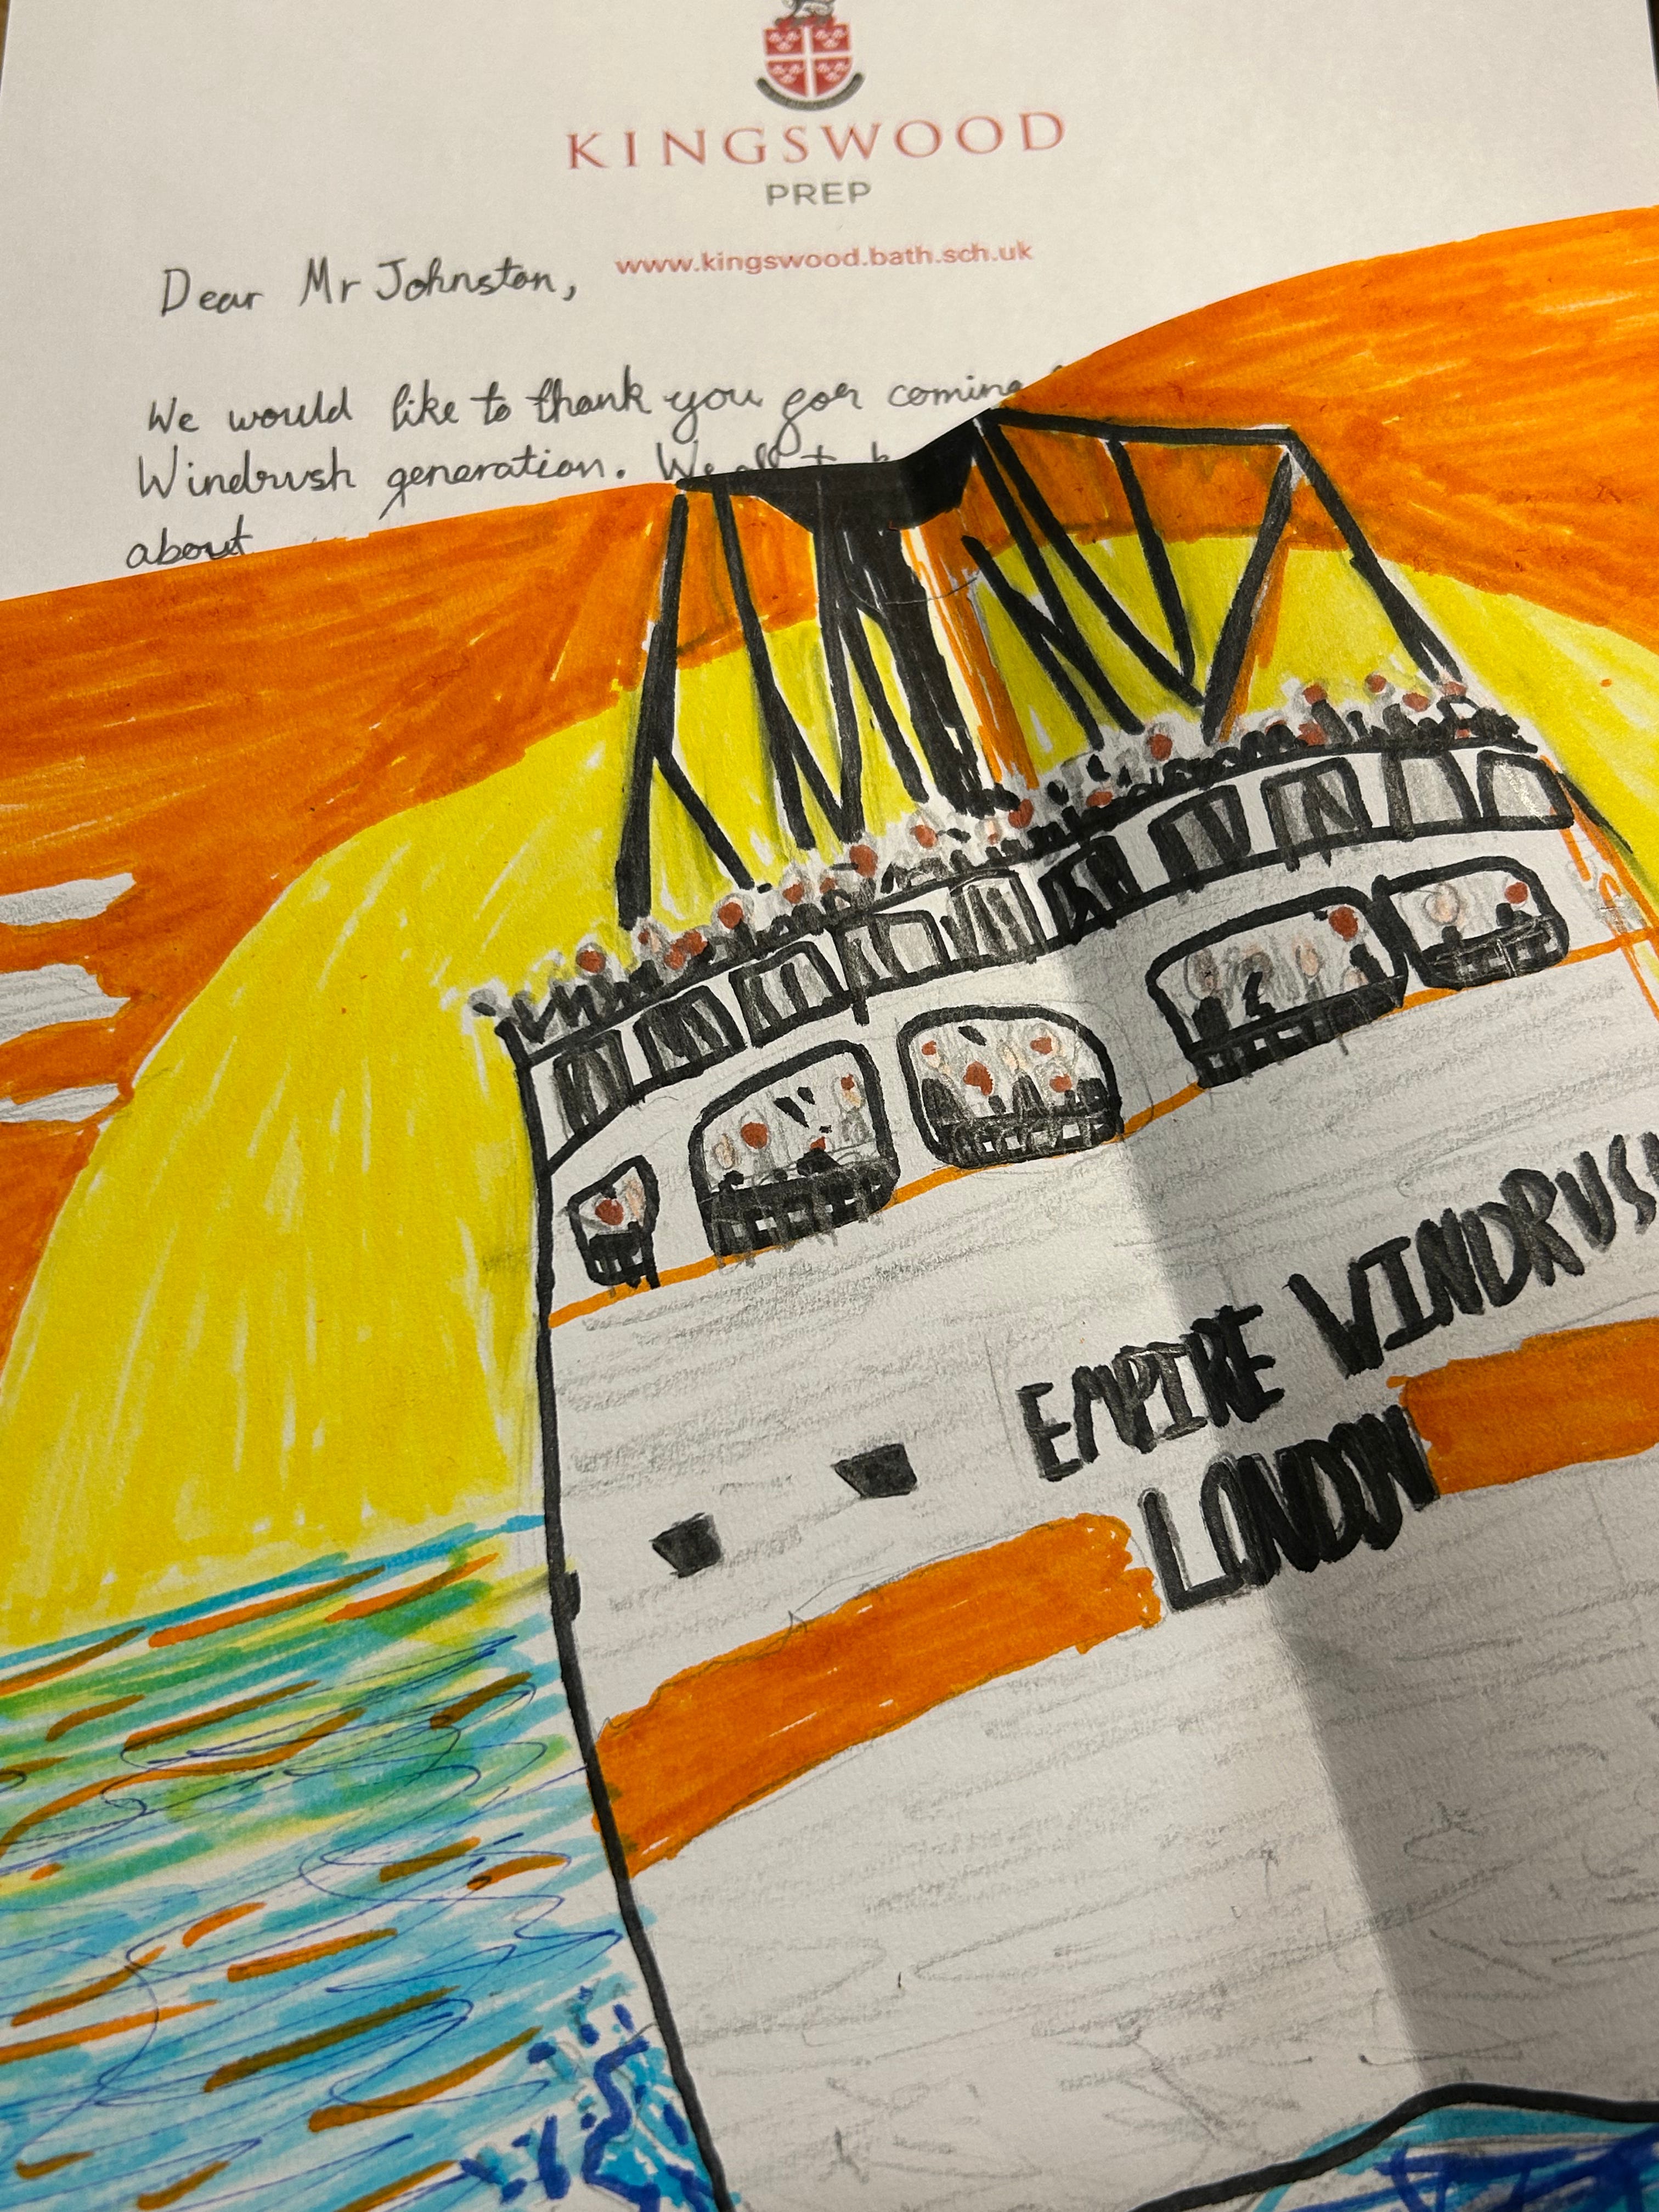 KINGSWOOD
PREP
www.kingswood.bath.sch.uk
Dear Mr Johnston,
We would like to thank you for coming
Windrush generation. We all
about
EMPIRE WINDRUSH
LONDON